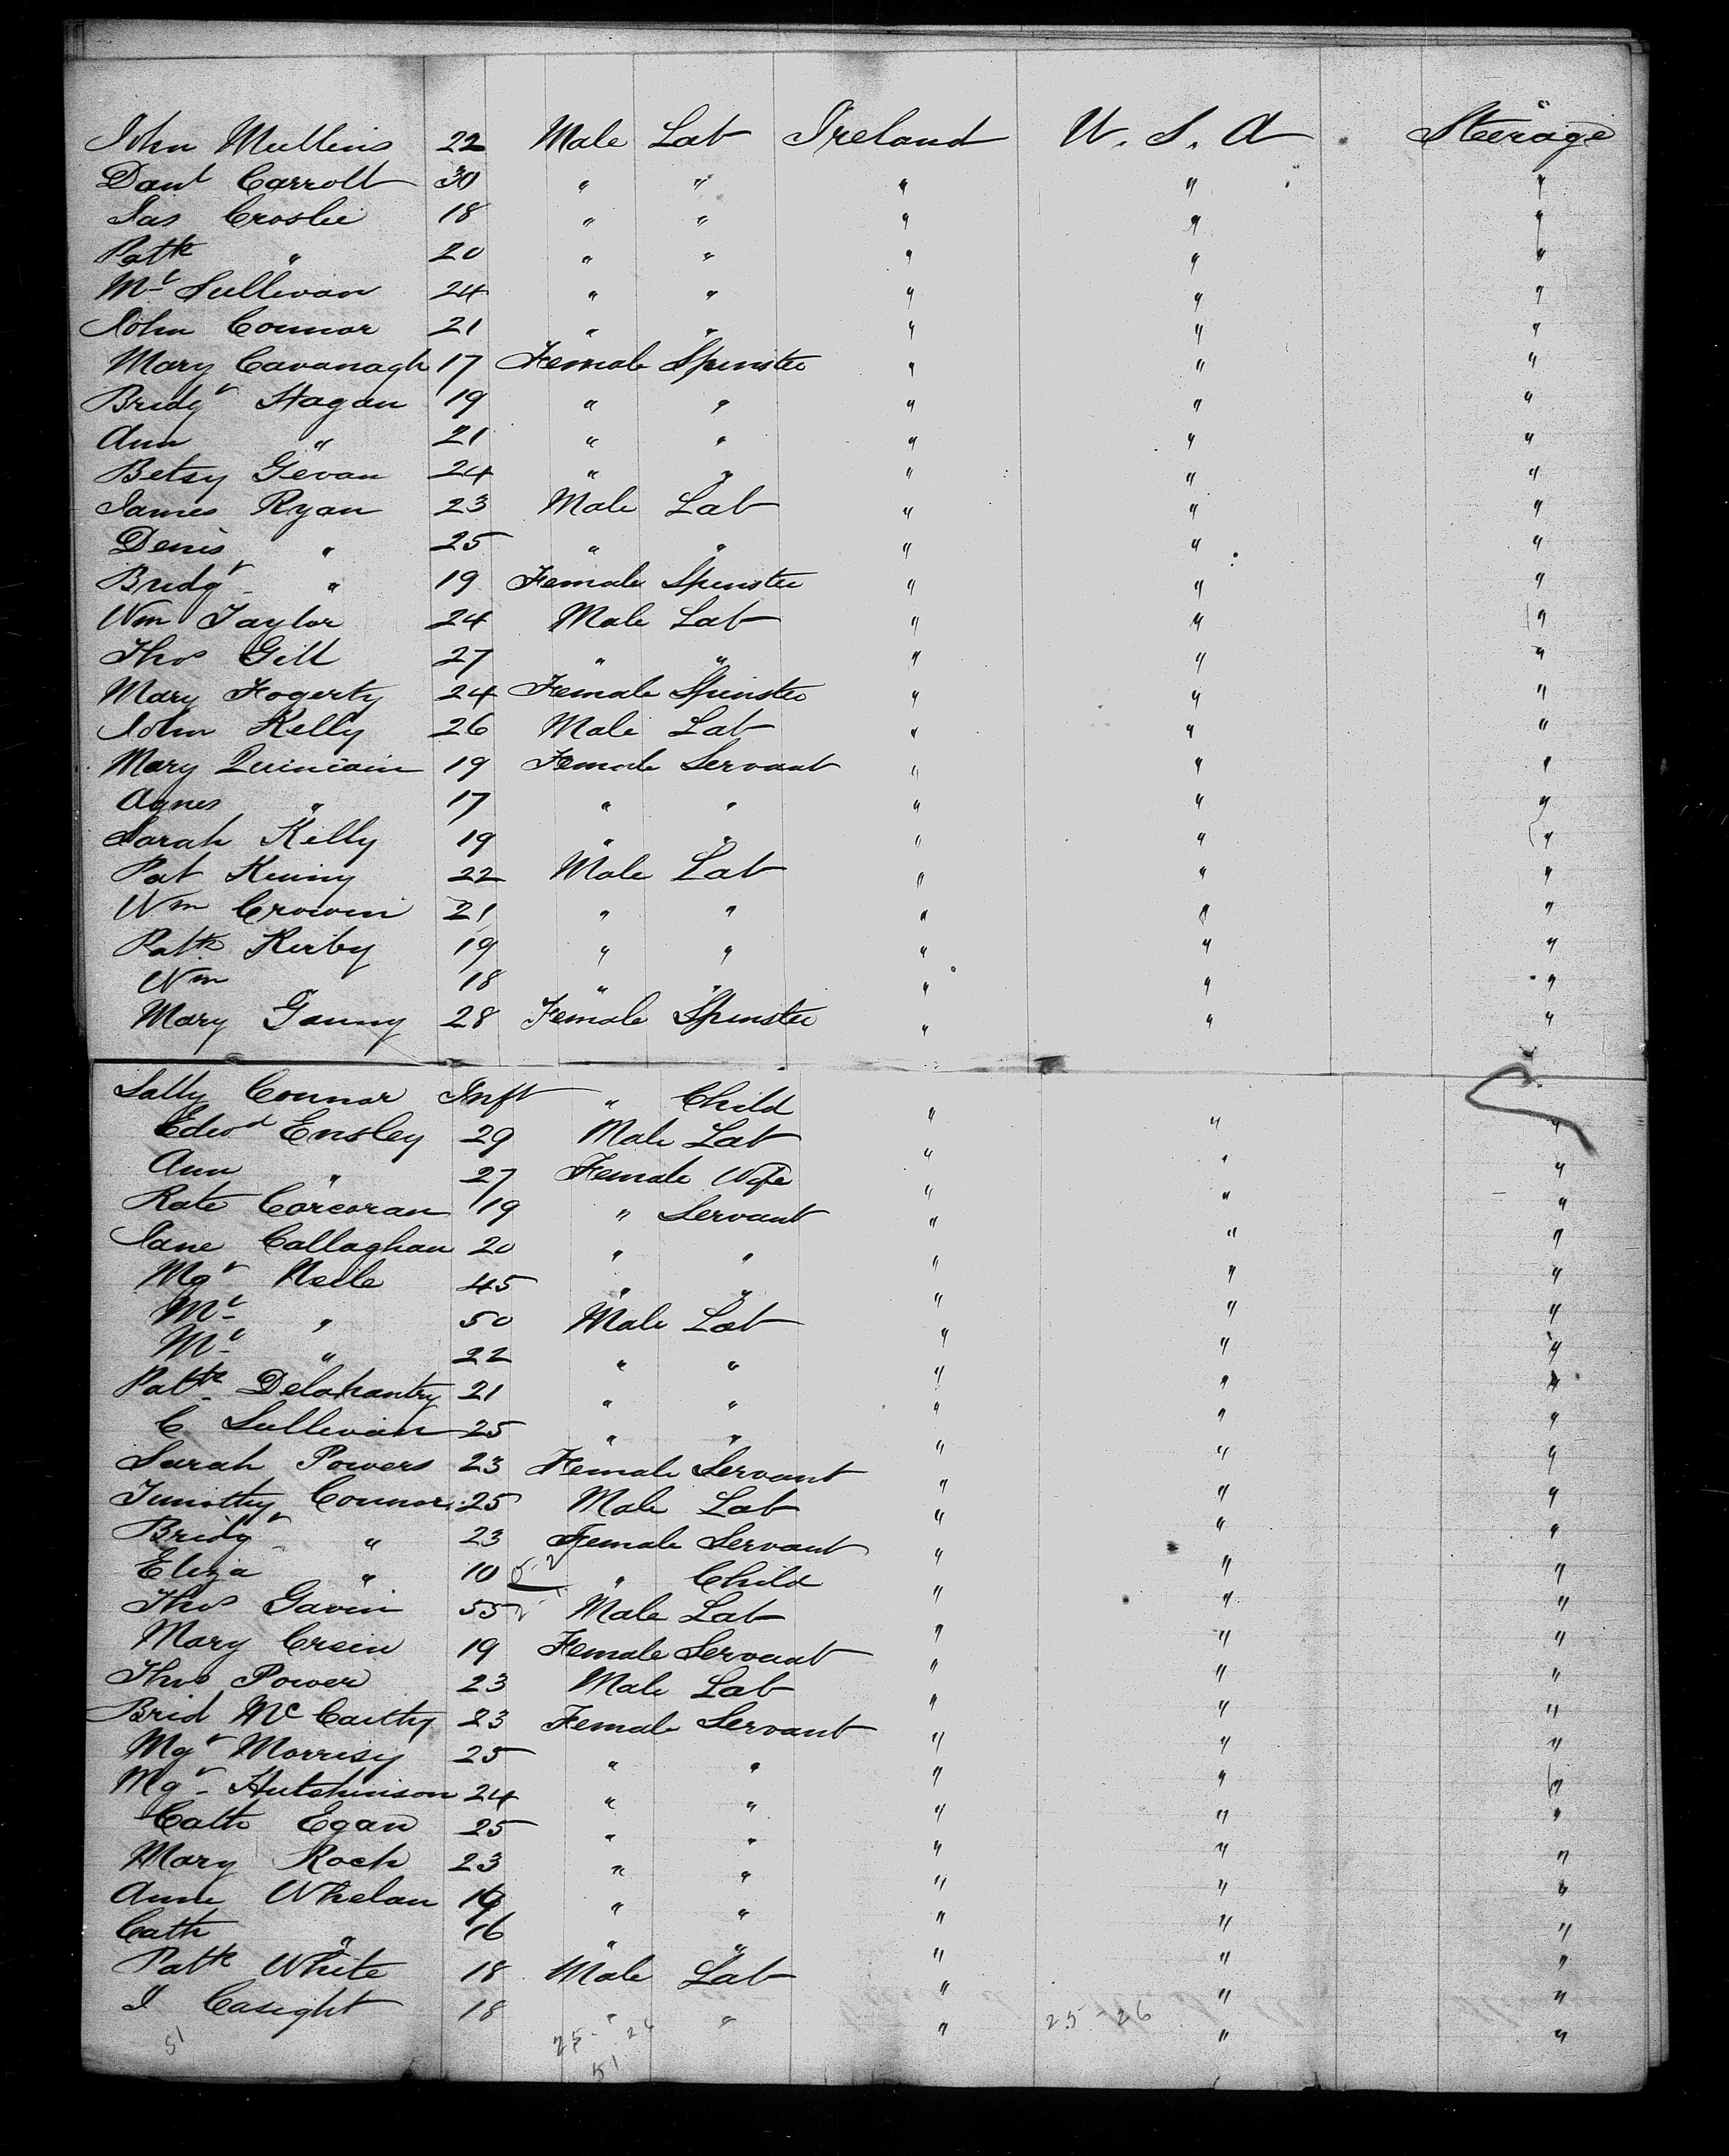 John Mullins 22 Male Lab Ireland U. S. A Steerage
Danl Carroll 30 " " " " "
Jas Crosbie 18 " " " " "
Patk " 20 " " " " "
Ml Sullivan 24 " " " " "
John Connor 21 " " " " "
Mary Cavanagh 17 Female Spinster " " "
Bridgt Hagan 19 " " " " "
Ann " 21 " " " " "
Betsy Gevan 24 " " " " "
James Ryan 23 Male Lab " " "
Denis " 25 " " " " "
Bridgt " 19 Female Spinster " " "
Wm Taylor 24 Male Lab " " "
Thos Gill 27 " " " " "
Mary Fogerty 24 Female Spinster " " "
John Kelly 26 Male Lab " " "
Mary Quinlain 19 Female Servant " " "
Agnes " 17 " " " " "
Sarah Kelly 19 " " " " "
Pat Kenny 22 Male Lab " " "
Wm Crowin 21 " " " " "
Patk Kirby 19 " " " " "
Wm 18 " " " " "
Mary Ganny 28 Female Spinster " " "
Sally Connor Inft " Child " " "
Edwd Ensley 29 Male Lab " " "
Ann " 27 Female Wife " " "
Kate Corcoran 19 " Servant " " "
Jane Callaghan 20 " " " " "
Mgt Neile 45 " " " " "
Ml " 50 Male Lab " " "
Ml " 22 " " " " "
Patk Delahantry 21 " " " " "
C Sullivan 25 " " " " "
Sarah Powers 23 Female Servant " " "
Timothy Connor 25 Male Lab " " "
Bridgt " 23 Female Servant " " "
Eliza " 10 " Child " " "
Thos Gavin 55 Male Lab " " "
Mary Crein 19 Female Servant " " "
Thos Power 23 Male Lab " " "
Brid McCarthy 23 Female Servant " " "
Mgt Morrisy 25 " " " " "
Mgt Hutchinson 24 " " " " "
Cath Egan 25 " " " " "
Mary Roch 23 " " " " "
Anne Whelan 19 " " " " "
Cath " 16 " " " " "
Patk White 18 Male Lab " " "
J Caseght 18 " " " " "
51 25 - 26 25 - 26
51